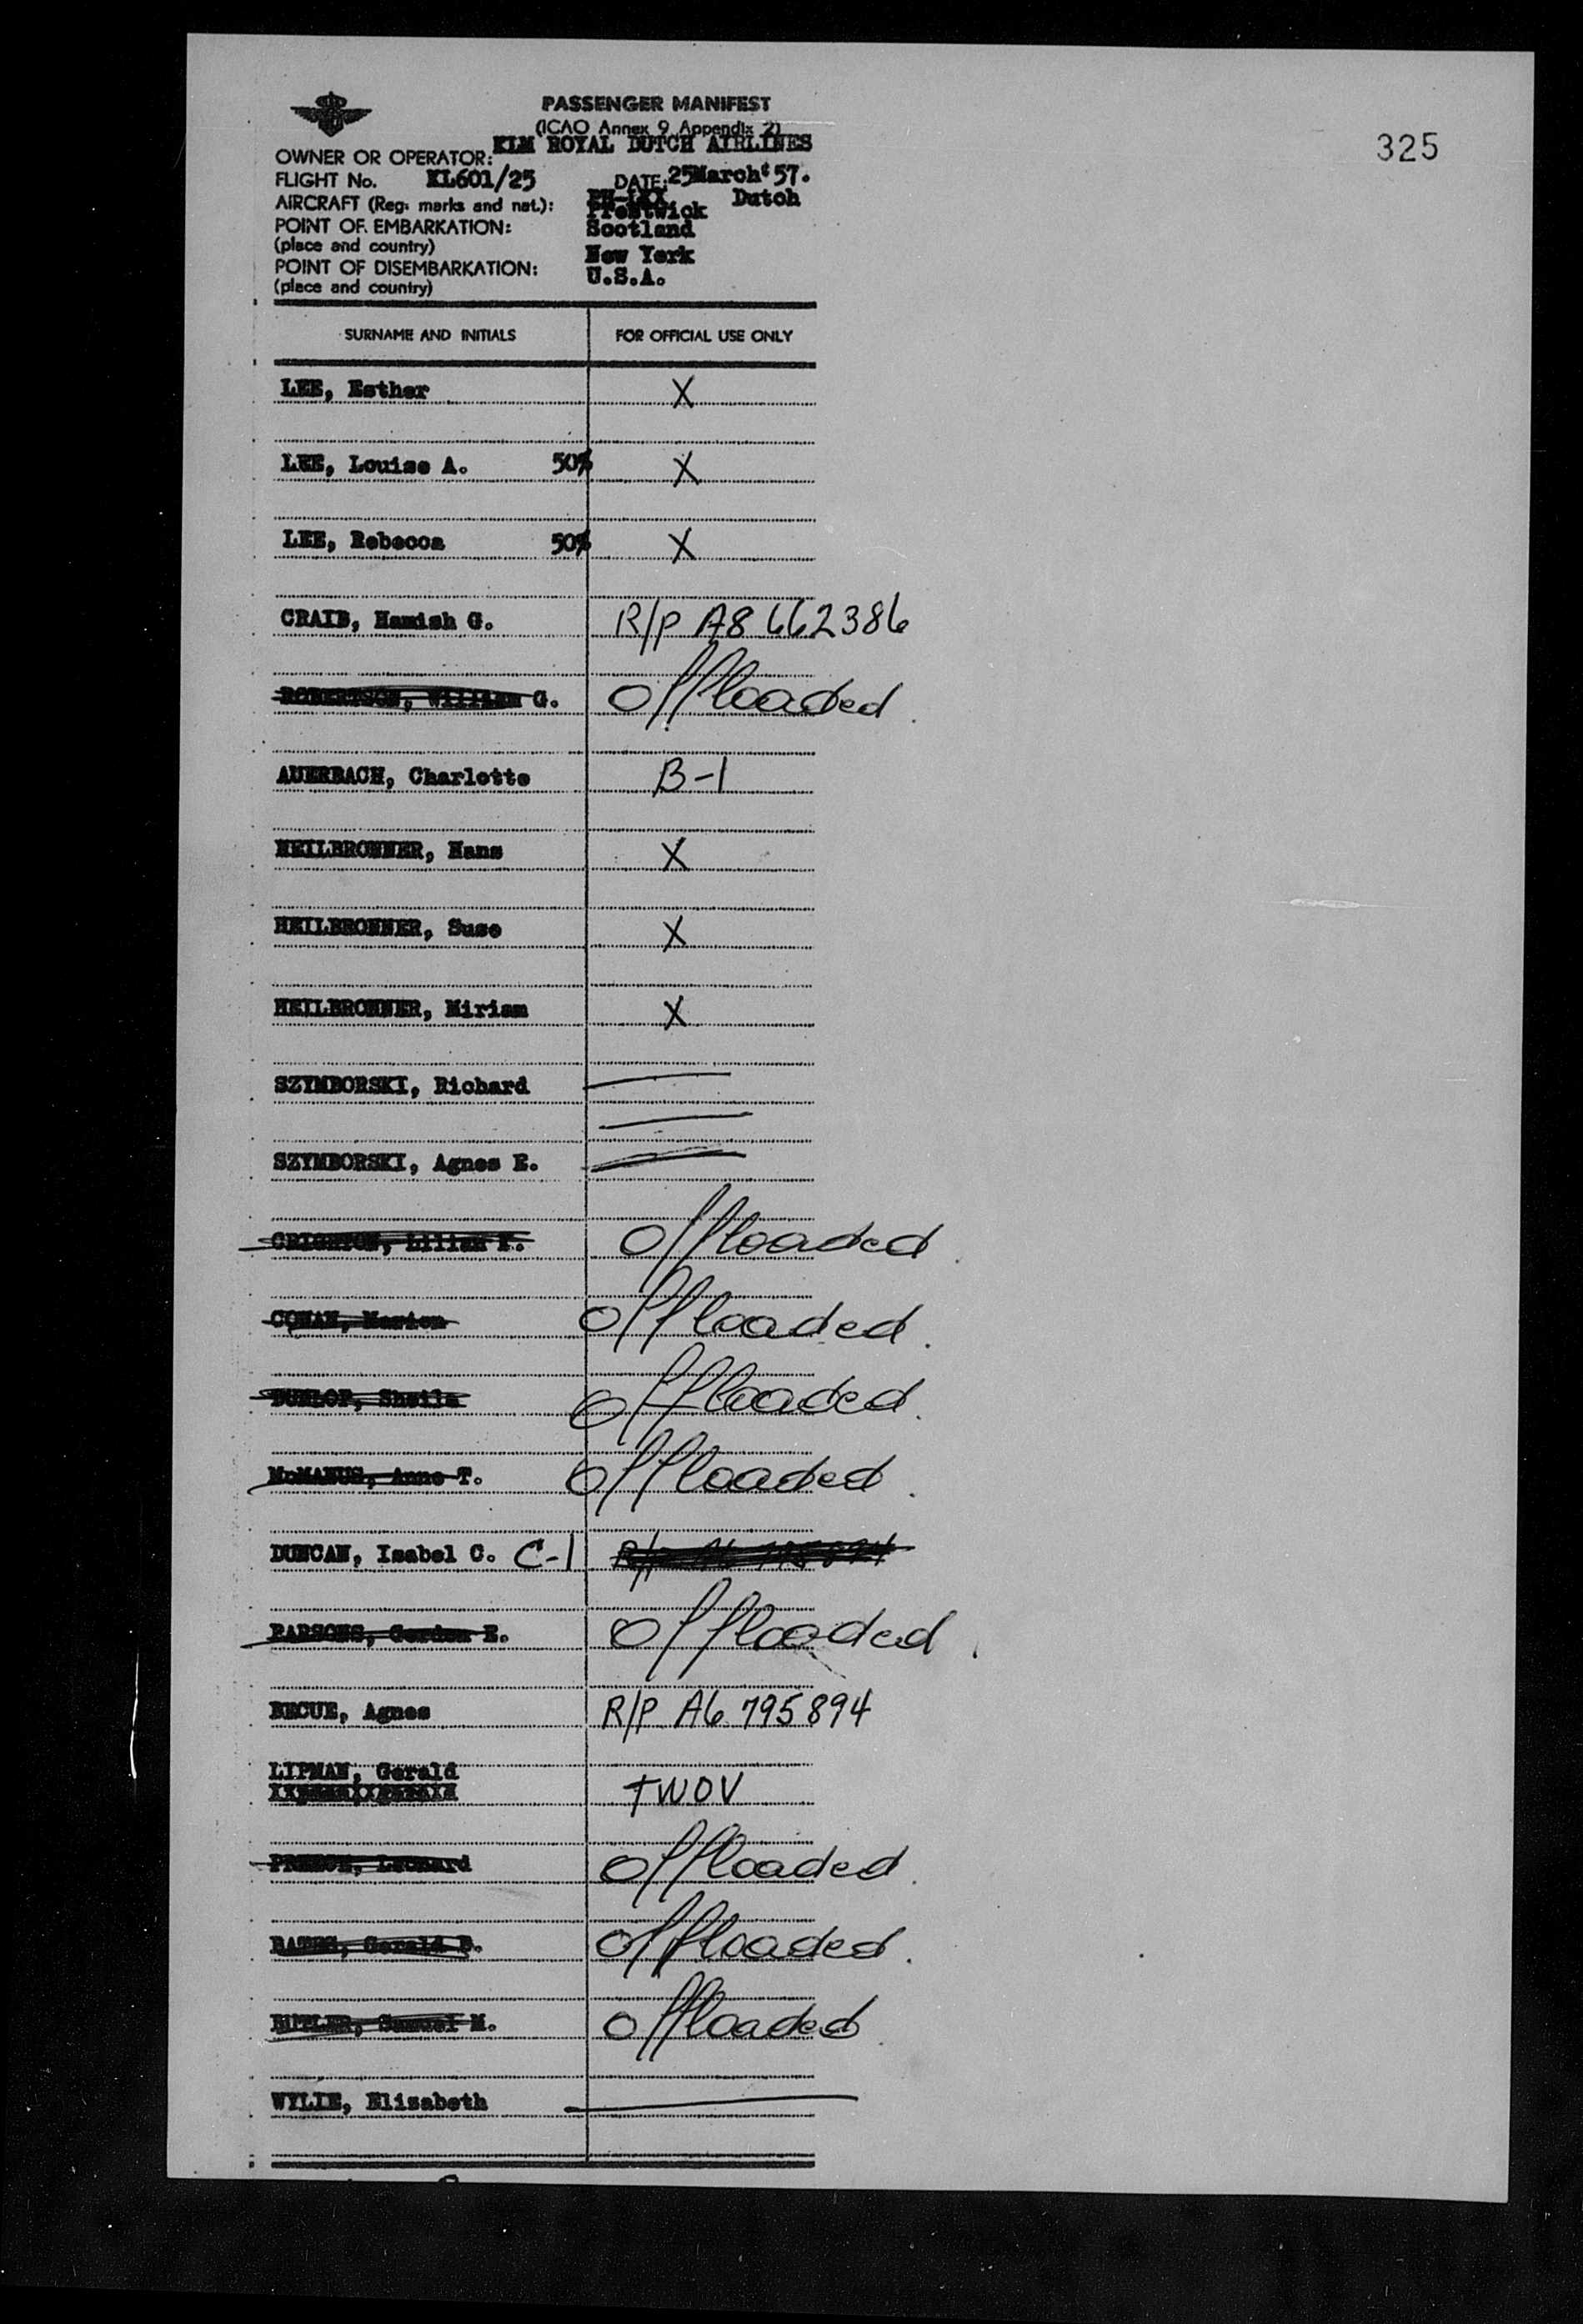 PASSENGER MANIFEST
(ICAO Annex 9 Appendix 2)
325
OWNER OR OPERATOR: KLM ROYAL DUTCH AIRLINES
FLIGHT No. KL601/25 DATE: 25March'57.
AIRCRAFT (Reg. marks and nat.): Dutch
POINT OF EMBARKATION: Prestwick
(place and country) Scotland
POINT OF DISEMBARKATION: New York
(place and country) U.S.A.
SURNAME AND INITIALS FOR OFFICIAL USE ONLY
LEE, Esther X
LEE, Louise A. 50% X
LEE, Rebecca 50% X
CRAIB, Hamish G. R/P A8 662386
ROBERTSON, William G. Offloaded
AUERBACH, Charlotte B-1
HEILBRONNER, Hans X
HEILBRONNER, Suse X
HEILBRONNER, Miriam X
SZYMBORSKI, Richard
SZYMBORSKI, Agnes E.
CRIGHTON, Lilian F. Offloaded
COWAN, Marion Offloaded.
DUNLOP, Sheila Offloaded.
McMANUS, Anne T. Offloaded.
DUNCAN, Isabel C. C-1 R/P A6 795894
PARSONS, Gordon E. Offloaded.
BECUE, Agnes R/P A6 795894
LIPMAN, Gerald
TWOV
Offloaded.
BATES, Gerald B. Offloaded.
BUTLER, Samuel M. Offloaded
WYLIE, Elizabeth